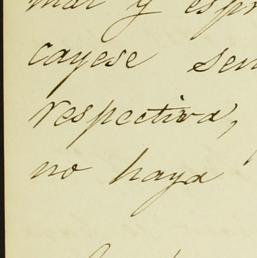 mal y espr
cayese sen
respectiva,
no haya